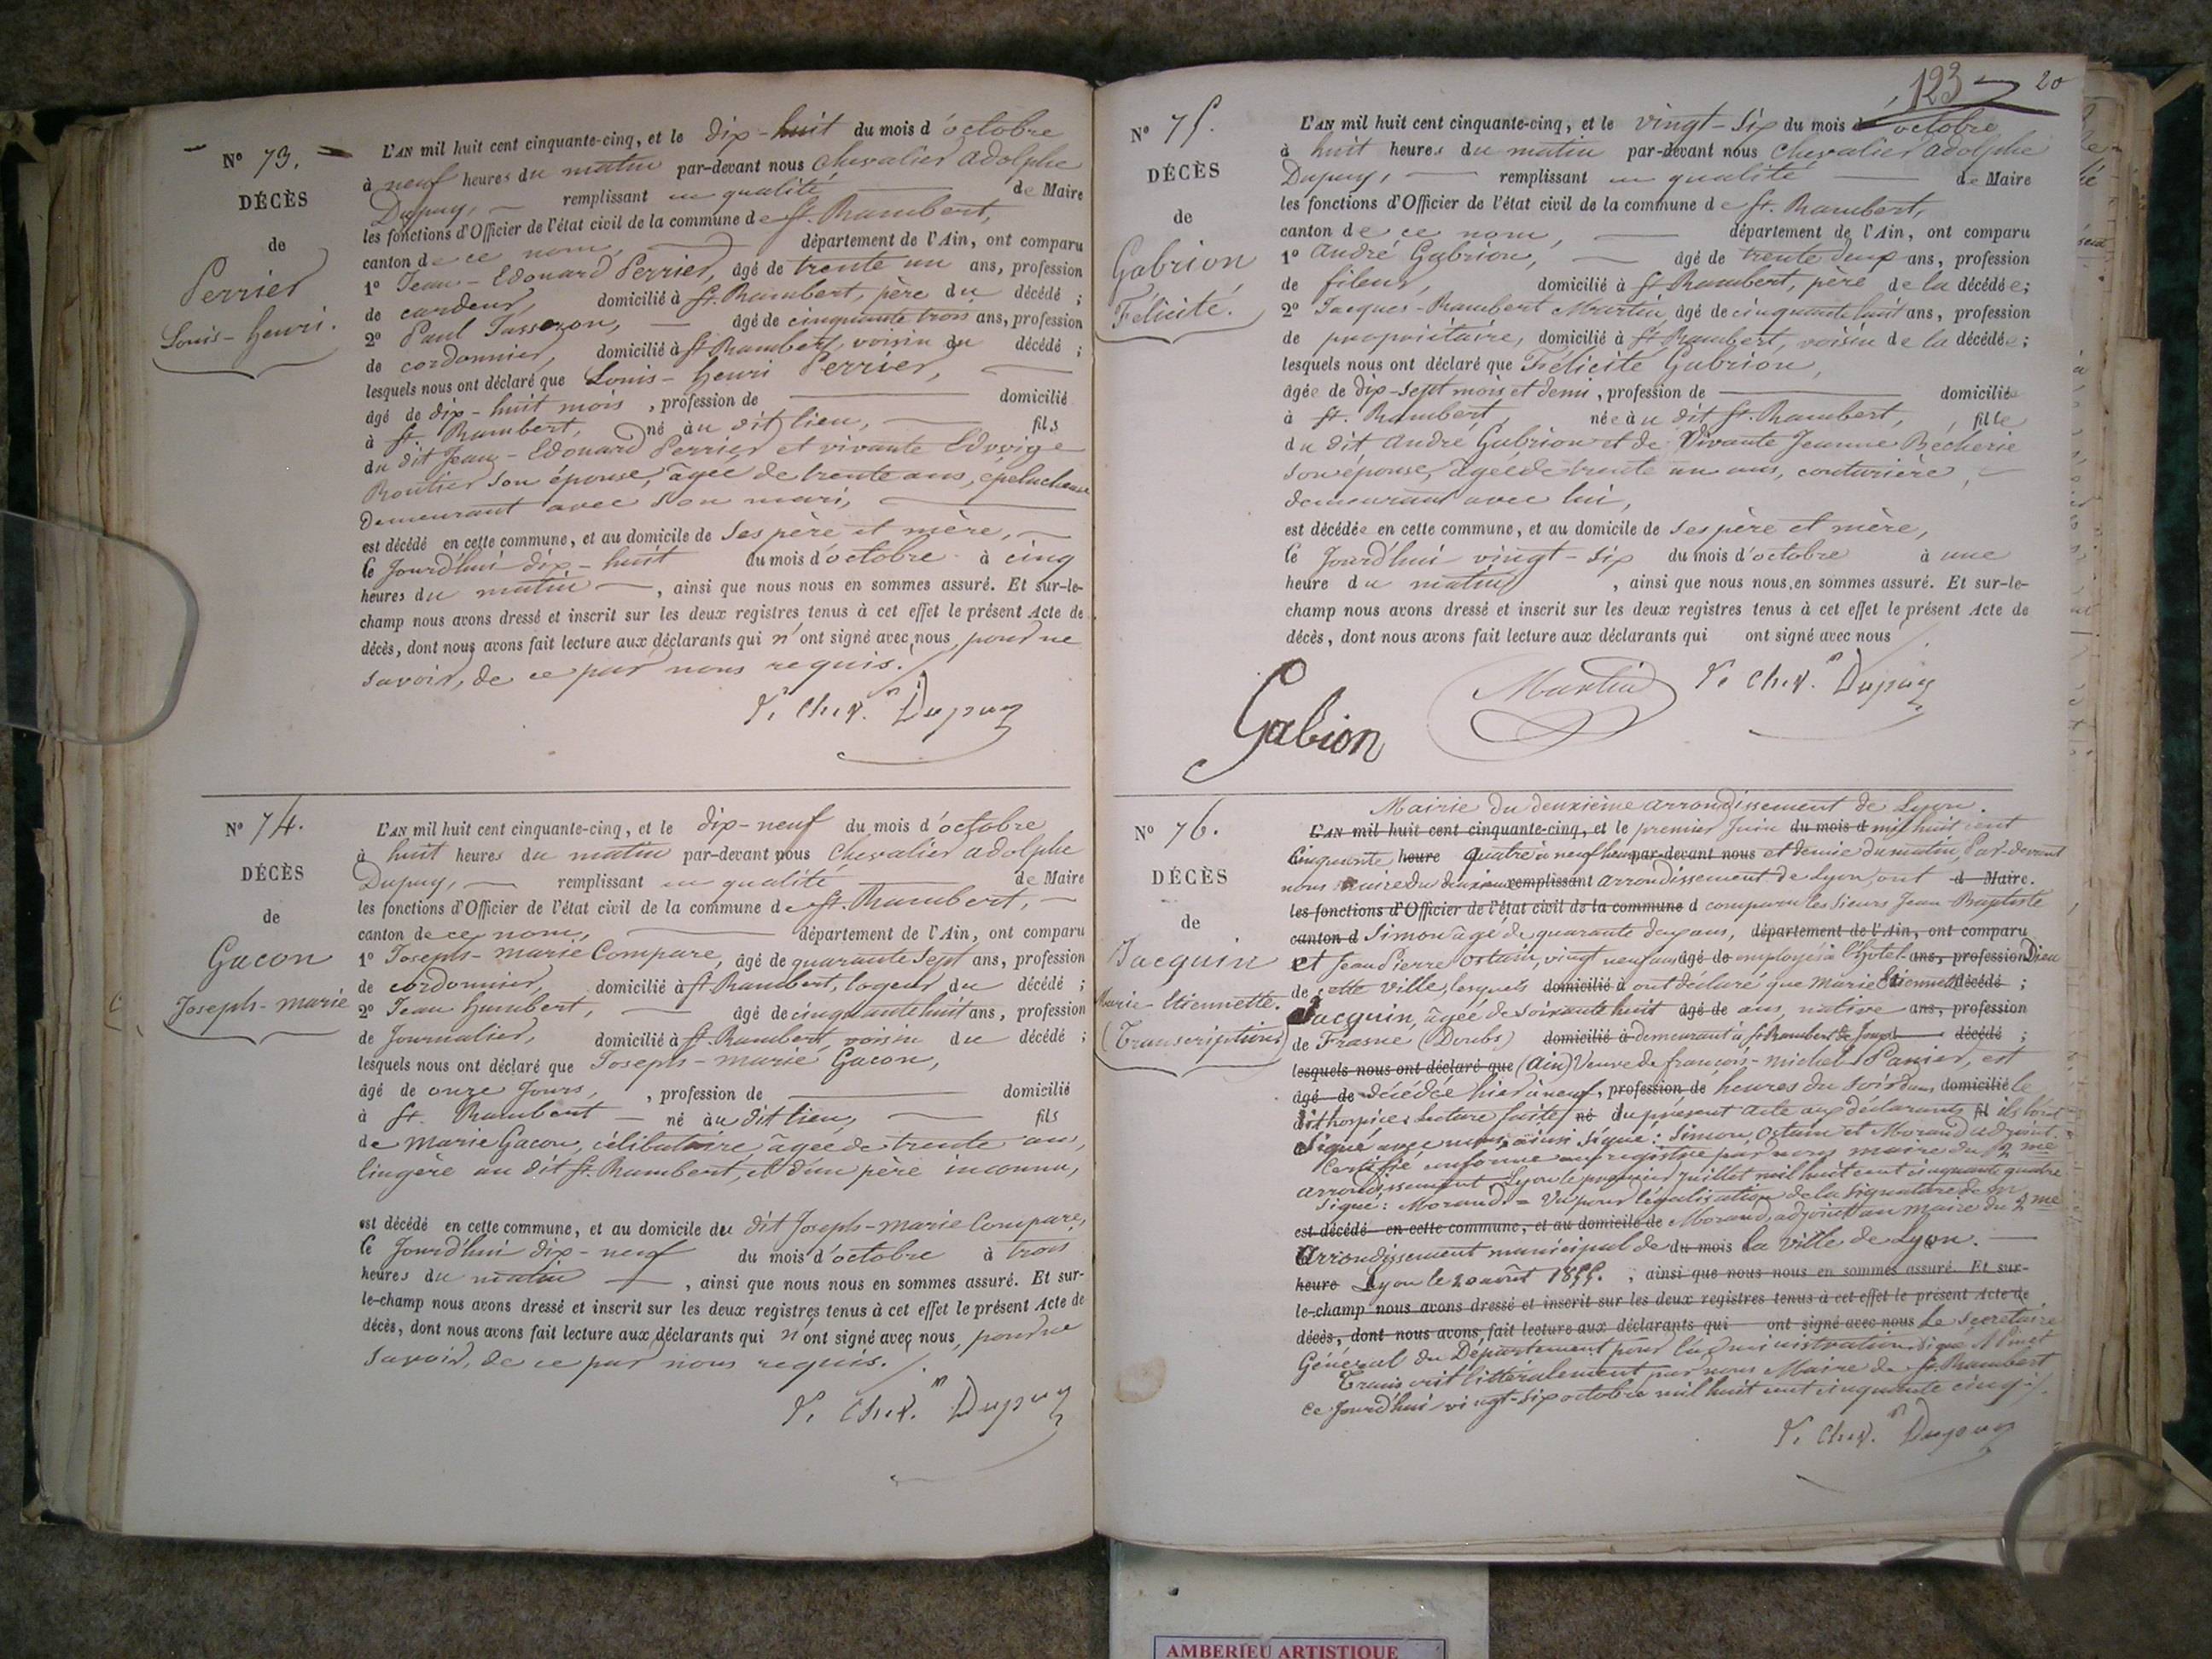 N° 73.
DÉCÈS
de
Perrier
Louis-Henri.
L'AN mil huit cent cinquante-cinq, et le dix-huit du mois d'octobre
à neuf heures du matin par-devant nous Chevalier Adolphe
Dupuy, remplissant en qualité de Maire
les fonctions d'Officier de l'état civil de la commune de St. Rambert,
canton de ce nom, département de l'Ain, ont comparu
1° Jean-Edouard Perrier, âgé de trente un ans, profession
de cardeur, domicilié à St. Rambert, père du décédé ;
2° Paul Tasseron, âgé de cinquante trois ans, profession
de cordonnier, domicilié à St Rambert, voisin du décédé ;
lesquels nous ont déclaré que Louis-Henri Perrier,
âgé de dix-huit mois, profession de domicilié
à St. Rambert, né au dit lieu, fils
du dit Jean-Edouard Perrier et vivante Edwige
Routier son épouse, âgée de trente ans, éplucheuse
demeurant avec son mari,
est décédé en cette commune, et au domicile de ses père et mère,
le jourd'hui dix-huit du mois d'octobre à cinq
heures du matin, ainsi que nous nous en sommes assuré. Et sur-le-
champ nous avons dressé et inscrit sur les deux registres tenus à cet effet le présent Acte de
décès, dont nous avons fait lecture aux déclarants qui n'ont signé avec nous, pour ne
savoir, de ce par nous requis.
Chev. Dupuy
N° 74.
DÉCÈS
de
Gacon
Joseph-Marie
L'AN mil huit cent cinquante-cinq, et le dix-neuf du mois d'octobre
à huit heures du matin par-devant nous Chevalier Adolphe
Dupuy, remplissant en qualité de Maire
les fonctions d'Officier de l'état civil de la commune de St. Rambert,
canton de ce nom, département de l'Ain, ont comparu
1° Joseph-Marie Compare, âgé de quarante sept ans, profession
de cordonnier, domicilié à St Rambert, logeur du décédé ;
2° Jean Humbert, âgé de cinquante huit ans, profession
de journalier, domicilié à St. Rambert, voisin du décédé ;
lesquels nous ont déclaré que Joseph-Marie Gacon,
âgé de onze jours, , profession de domicilié
à St. Rambert né au dit lieu, fils
de Marie Gacon, célibataire, âgée de trente ans,
lingère au dit St. Rambert, et d'un père inconnu,
est décédé en cette commune, et au domicile du dit Joseph-Marie Compare,
le jourd'hui dix-neuf du mois d'octobre à trois
heures du matin, ainsi que nous nous en sommes assuré. Et sur-
le-champ nous avons dressé et inscrit sur les deux registres tenus à cet effet le présent Acte de
décès, dont nous avons fait lecture aux déclarants qui n'ont signé avec nous, pour ne
savoir, de ce par nous requis.
Chev. Dupuy
123
20
N° 75.
DÉCÈS
de
Gabrion
Félicité.
L'AN mil huit cent cinquante-cinq, et le vingt-six du mois d'octobre
à huit heures du matin par-devant nous Chevalier Adolphe
Dupuy, remplissant en qualité de Maire
les fonctions d'Officier de l'état civil de la commune de St. Rambert,
canton de ce nom, département de l'Ain, ont comparu
1° André Gabrion, âgé de trente deux ans, profession
de fileur, domicilié à St Rambert, père de la décédée;
2° Jacques-Rambert Martin, âgé de cinquante huit ans, profession
de propriétaire, domicilié à St Rambert, voisin de la décédée;
lesquels nous ont déclaré que Félicité Gabrion,
âgée de dix-sept mois et demi, profession de domiciliée
à St. Rambert, née au dit St. Rambert, fille
du dit André Gabrion et de vivante Jeanne Bécherie
son épouse, âgée de trente un ans, couturière,
demeurant avec lui,
est décédée en cette commune, et au domicile de ses père et mère,
le jourd'hui vingt-six du mois d'octobre à une
heure du matin, ainsi que nous nous en sommes assuré. Et sur-le-
champ nous avons dressé et inscrit sur les deux registres tenus à cet effet le présent Acte de
décès, dont nous avons fait lecture aux déclarants qui ont signé avec nous
Gabion Martin Chev. Dupuy
N° 76.
DÉCÈS
de
Jacquin
Marie-Etiennette.
(Transcription)
Mairie du deuxième arrondissement de Lyon.
L'AN mil huit cent cinquante-cinq, et le premier Juin du mois d mil huit cent
cinquante heure quatre à neuf heures par-devant nous et demie du matin, Par-devant
nous maire du deuxième remplissant arrondissement de Lyon, ont d Maire.
les fonctions d'Officier de l'état civil de la commune d comparu les sieurs Jean-Baptiste
canton d Simon âgé de quarante deux ans, département de l'Ain, ont comparu
et Jean Pierre Ostain, vingt neuf ans âgé de employés à l'hôtel ans, profession Dieu
de cette ville, lesquels domicilié à ont déclaré que Marie Etiennette décédé ;
Jacquin, âgée de soixante huit âgé de ans, native ans, profession
de Frasne (Doubs) domicilié à demeurant à St Rambert de Joux décédé ;
lesquels nous ont déclaré que (Ain) Veuve de François-Michel Panier, est
âgé de décédée hier à neuf, profession de heures du soir dans domicilié le
dit hospice, Lecture faite né du présent acte aux déclarants fil ils l'ont
signé avec nous, ainsi signé : Simon, Ostain et Morand adjoint.
Certifié conforme au registre par nous maire du 2me
arrondissement Lyon le premier juillet mil huit cent cinquante quatre
Signé : Morand = Vu pour légalisation de la signature de M
est décédé en cette commune, et au domicile de Morand, adjoint au maire du 2me
Arrondissement municipal de du mois la ville de Lyon.
heure Lyon le 20 août 1855. , ainsi que nous nous en sommes assuré. Et sur-
le-champ nous avons dressé et inscrit sur les deux registres tenus à cet effet le présent Acte de
décès, dont nous avons fait lecture aux déclarants qui ont signé avec nous Le Secrétaire
Général du Département pour l'administration signé
Transcrit littéralement par nous Maire de St. Rambert
ce jourd'hui vingt-six octobre mil huit cent cinquante cinq.
Chev. Dupuy
AMBERIEU ARTISTIQUE